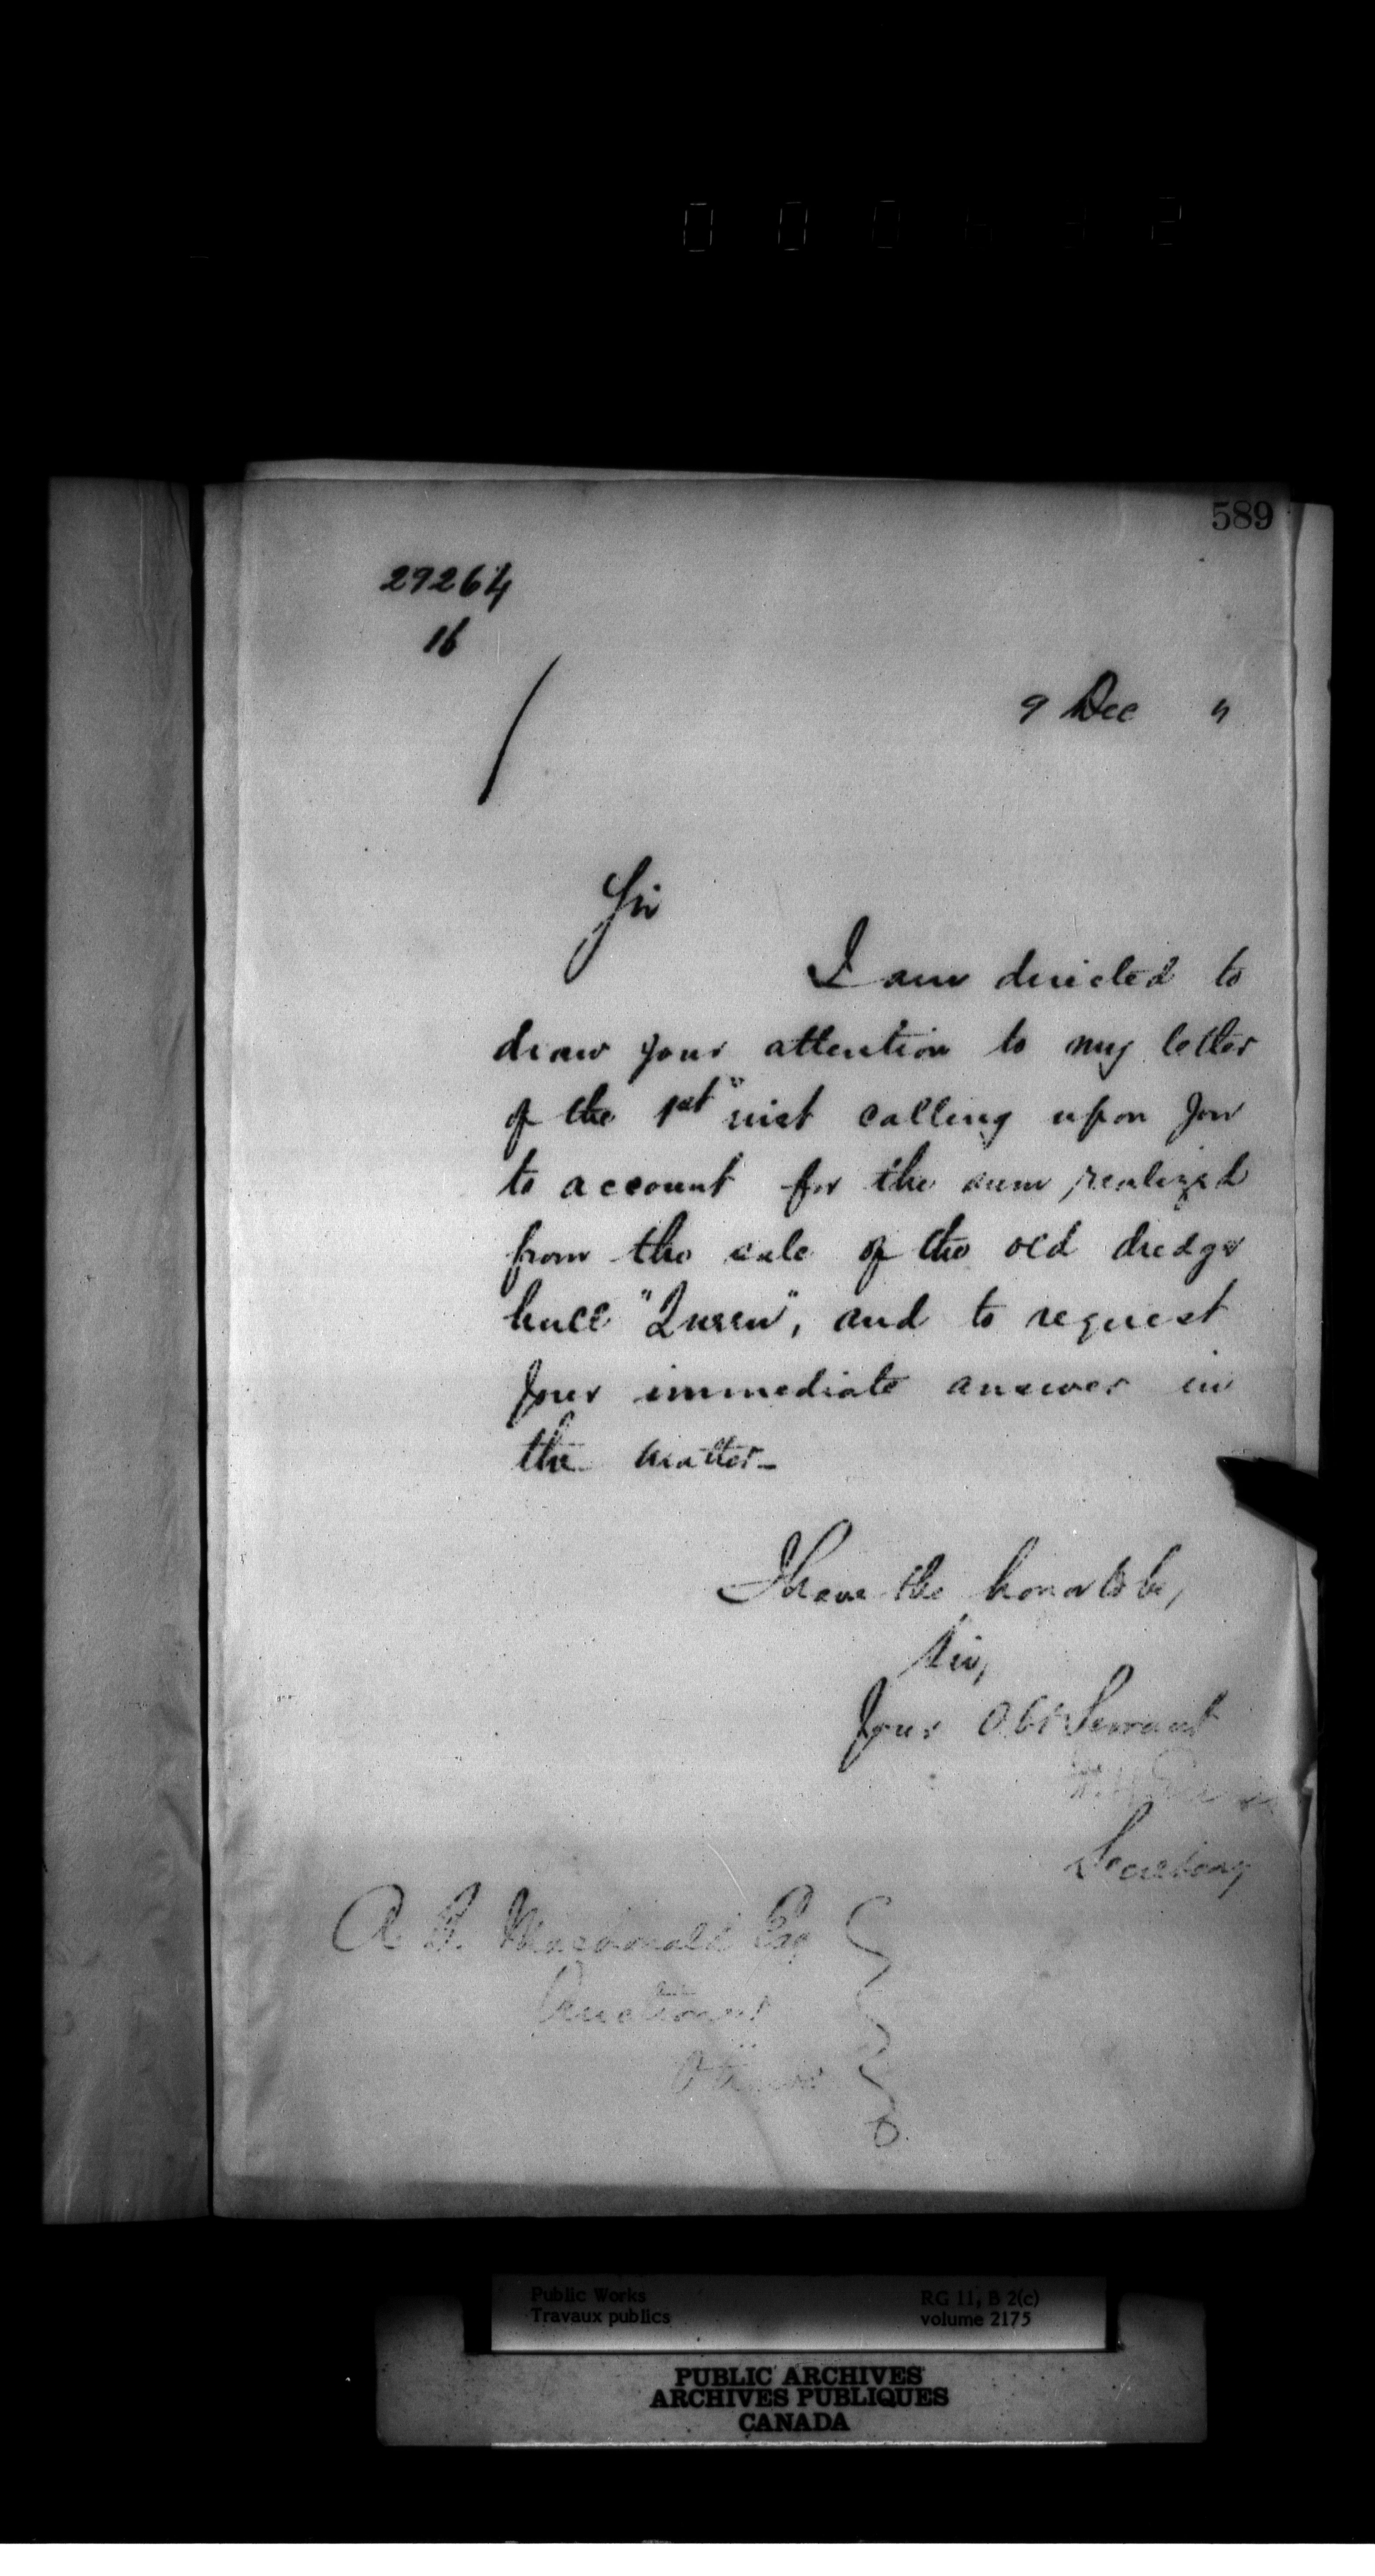 589
29264
16
9 Dec "
Sir
I am directed to
draw your attention to my letter
of the 1st inst calling upon you
to account for the sum realized
from the sale of the old dredge
hull "Queen", and to request
your immediate answer in
the matter_
I have the honor to be,
Sir,
Your Obt Servant
Secretary
A. Macdonald Esq
Auctioneer
Ottawa
Public Works
Travaux publics
RG 11, B 2(c)
volume 2175
PUBLIC ARCHIVES
ARCHIVES PUBLIQUES
CANADA